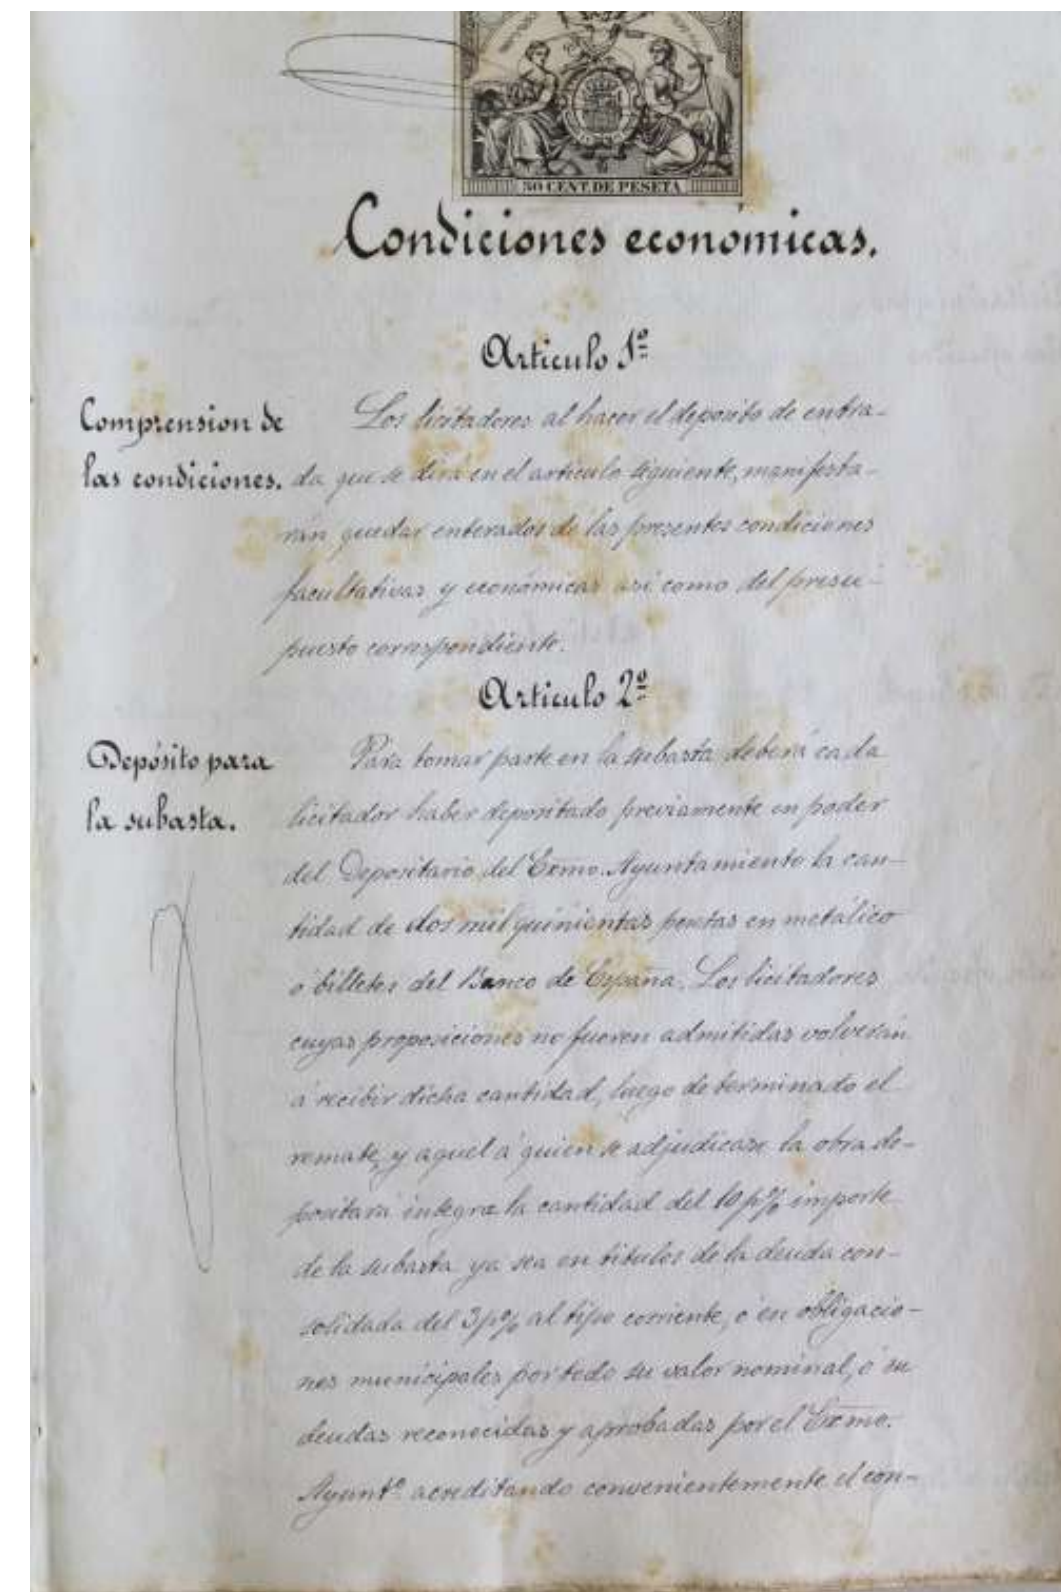 50 CENT. DE PESETA
Condiciones económicas.
Articulo 1º
Comprension de
las condiciones.
Los licitadores al hacer el deposito de entra-
da que se dirá en el articulo siguiente, manifesta-
rán quedar enterados de las presentes condiciones
facultativas y económicas así como del presu-
puesto correspondiente.
Articulo 2º
Depósito para
la subasta.
Para tomar parte en la subasta deberá cada
licitador haber depositado previamente en poder
del Depositario del Exmo. Ayuntamiento la can-
tidad de dos mil quinientas pesetas en metálico
o billetes del Banco de España. Los licitadores
cuyas proposiciones no fueren admitidas volverán
á recibir dicha cantidad, luego de terminado el
remate, y aquel á quien se adjudicase la obra de-
positará integra la cantidad del 10 p% importe
de la subasta ya sea en titulos de la deuda con-
solidada del 3 p% al tipo corriente, ó en obligacio-
nes municipales por todo su valor nominal, ó en
deudas reconocidas y aprobadas por el Exmo.
Ayuntº acreditando convenientemente el con-